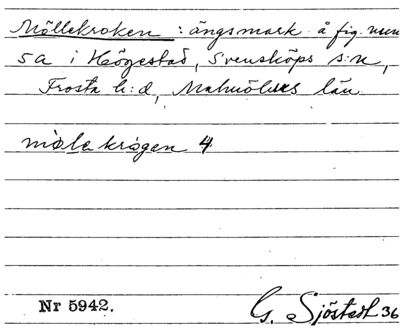 Möllekroken : ängsmark å fig. num
5a i Högestad, Svensköps s:n,
Frosta h:d, Malmöhus län
mölekrogen 4
Nr 5942. G. Sjöstedt 36